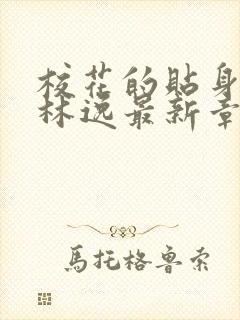 校花的贴身
林逸最新章
马托格鲁索